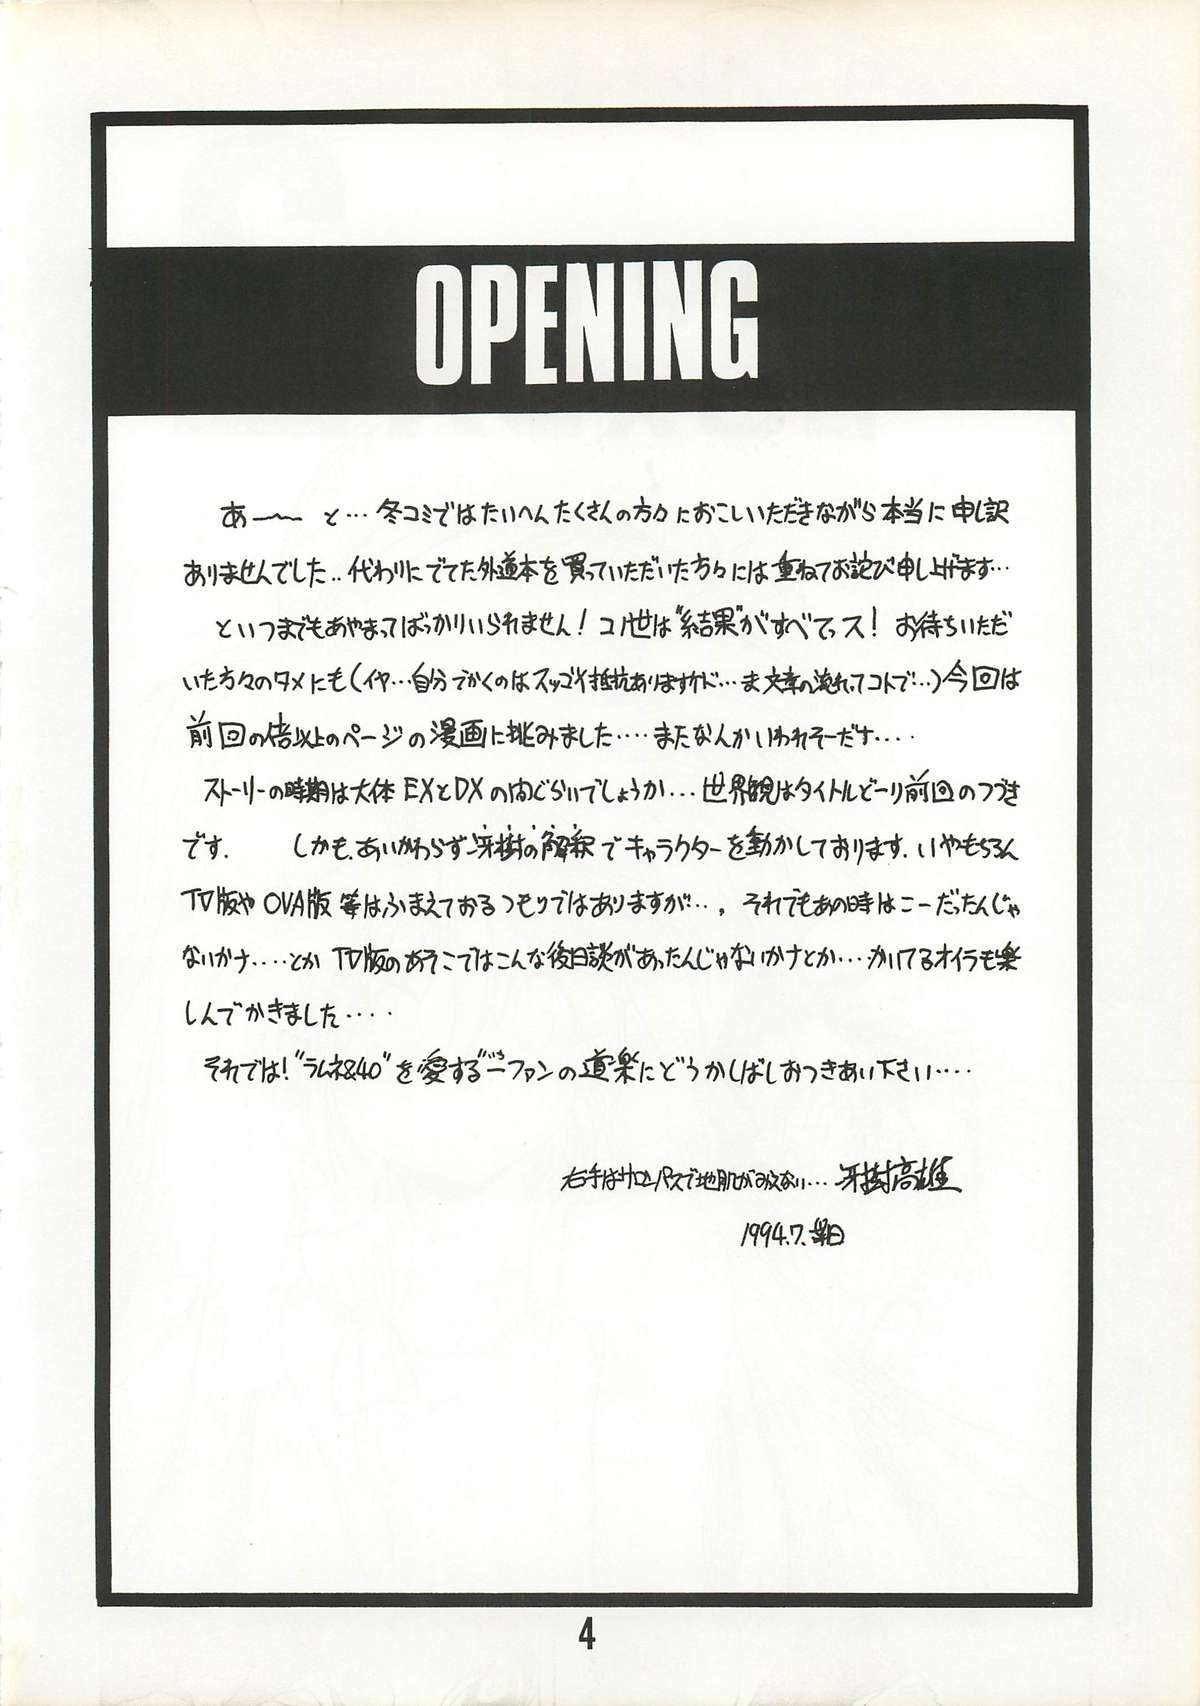 OPENING
あ〜〜 と…冬コミではたいへんたくさんの方々におこしいただきながら本当に申し訳
ありませんでした..代わりにでてた外道本を買っていただいた方々には重ねてお詫び申し上げます…
といつまでもあやまってばっかりいられません!コノ世は"結果"がすべてっス!お待ちいただ
いた方々のタメにも(イヤ…自分でかくのはスッゴイ抵抗ありますケド…ま文章の流れってコトで…)今回は
前回の倍以上のページの漫画に挑みました‥‥またなんかいわれそーだす‥‥
ストーリーの時期は大体EXとDXの間ぐらいでしょうか…世界観はタイトルどーり前回のつづき
です. しかも、あいかわらず牙樹の解釈でキャラクターを動かしております.いやもちろん
TV版やOVA版等はふまえておるつもりではありますが…。それでもあの時はこーだったんじゃ
ないかナ‥‥とか TV版のあそこではこんな後日談があったんじゃないかナとか…かいてるオイラも楽
しんでかきました‥‥
それでは!"ラムネ&40"を愛する一ファンの道楽にどうかしばしおつきあい下さい‥‥
右手はサロンパスで地肌がみえない…牙樹高雄
1994.7.
4